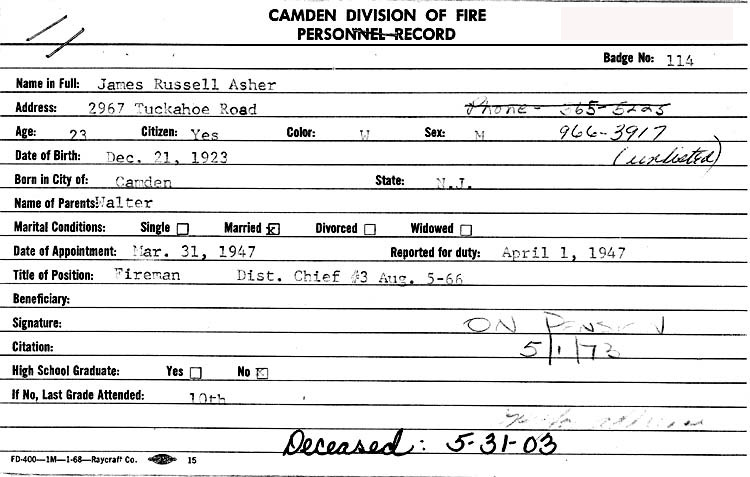 CAMDEN DIVISION OF FIRE
PERSONNEL RECORD
Badge No: 114
Name in Full: James Russell Asher
Address: 2967 Tuckahoe Road Phone - 365-5225
Age: 23 Citizen: Yes Color: W Sex: M 966-3917
Date of Birth: Dec. 21, 1923 (unlisted)
Born in City of: Camden State: N.J.
Name of Parents: Walter
Marital Conditions: Single Married Divorced Widowed
Date of Appointment: Mar. 31, 1947 Reported for duty: April 1, 1947
Title of Position: Fireman Dist. Chief #3 Aug. 5-66
Beneficiary:
Signature: ON PENSION
Citation: 5/1/73
High School Graduate: Yes No
If No, Last Grade Attended: 10th
Deceased: 5-31-03
FD-400—1M—1-68—Raycraft Co. 15